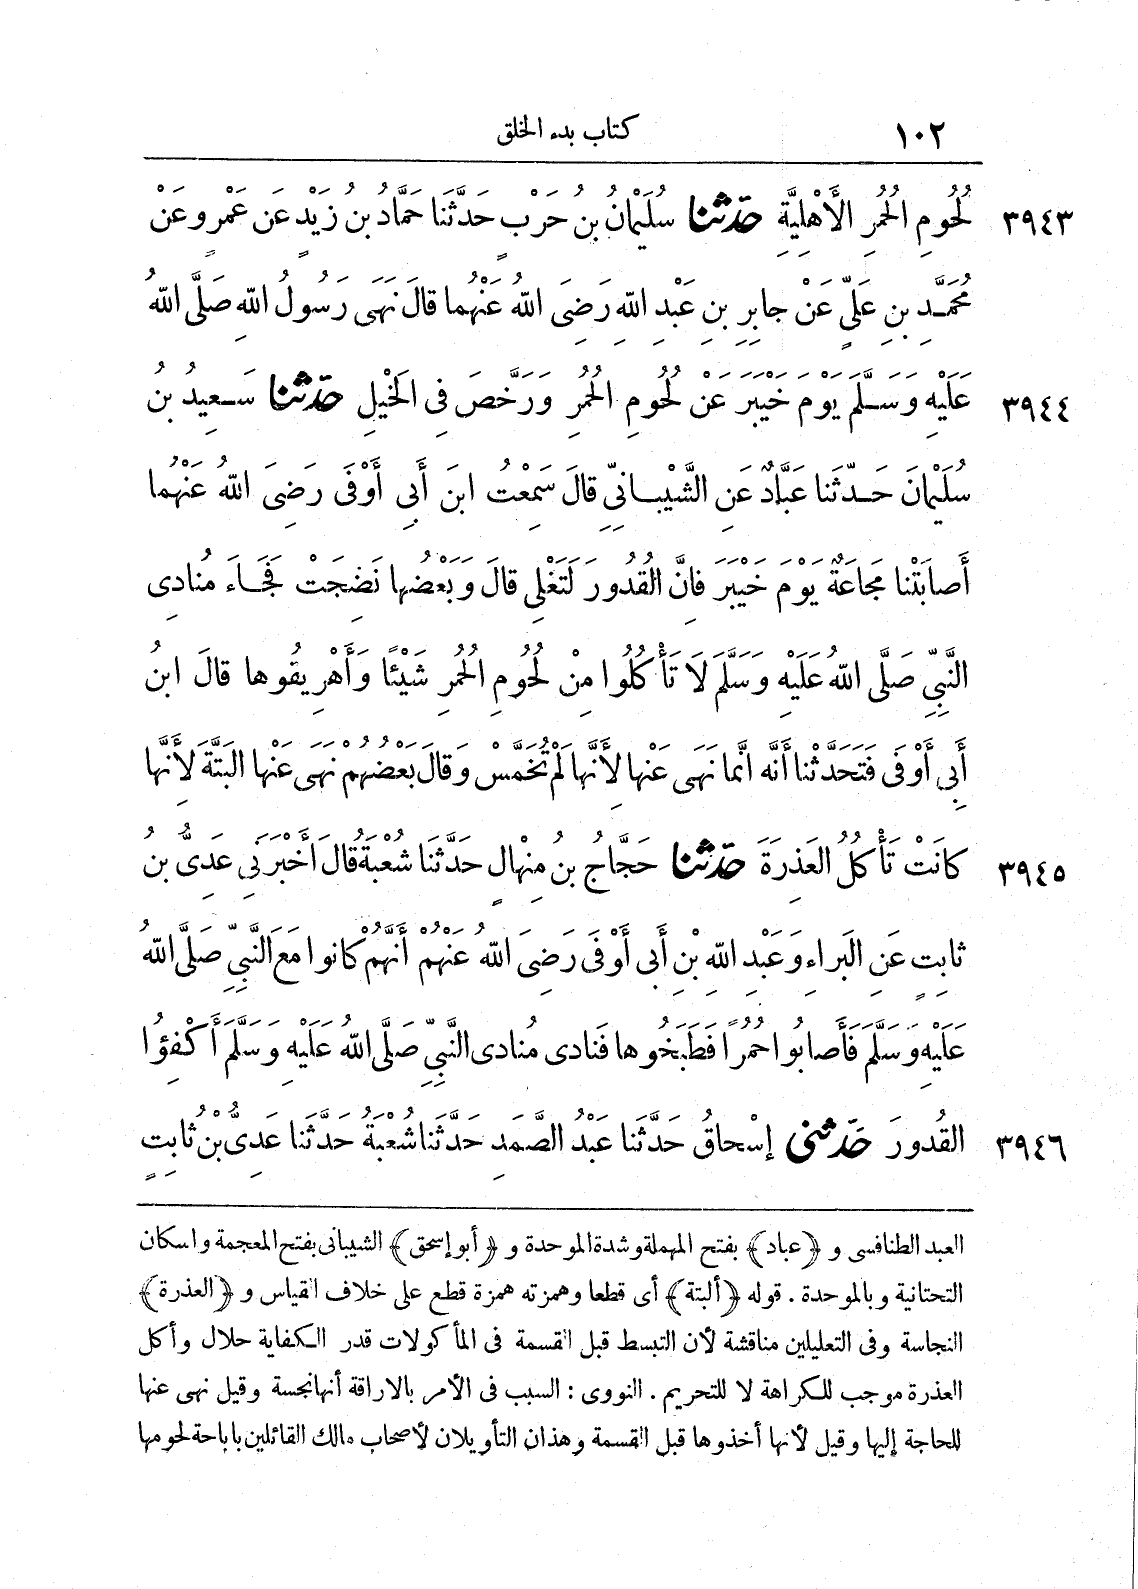 ١٠٢ كتاب بدء الخلق
٣٩٤٣ لُحُومِ الحُمُرِ الأَهْلِيَّةِ حَدَّثَنا سُلَيْمانُ بنُ حَرْبٍ حَدَّثَنا حَمَّادُ بنُ زَيْدٍ عَن عَمْرٍو عَنْ
مُحَمَّدِ بنِ عَلِيٍّ عَنْ جابِرِ بنِ عَبْدِ اللهِ رَضِىَ اللهُ عَنْهُما قالَ نَهَى رَسُولُ اللهِ صَلَّى اللهُ
٣٩٤٤ عَلَيْهِ وَسَلَّمَ يَوْمَ خَيْبَرَ عَنْ لُحُومِ الحُمُرِ وَرَخَّصَ فِى الخَيْلِ حَدَّثَنا سَعِيدُ بنُ
سُلَيْمانَ حَدَّثَنا عَبَّادٌ عَنِ الشَّيْبانِىِّ قالَ سَمِعْتُ ابنَ أَبِى أَوْفَى رَضِىَ اللهُ عَنْهُما
أَصابَتْنا مَجاعَةٌ يَوْمَ خَيْبَرَ فإنَّ القُدُورَ لَتَغْلِى قالَ وَبَعْضُها نَضِجَتْ فَجَاءَ مُنادِى
النَّبِىِّ صَلَّى اللهُ عَلَيْهِ وَسَلَّمَ لَا تَأْكُلُوا مِنْ لُحُومِ الحُمُرِ شَيْئًا وَأَهْرِيقُوها قالَ ابنُ
أَبِى أَوْفَى فَتَحَدَّثْنا أَنَّه انَّما نَهَى عَنْها لأَنَّها لَمْ تُخَمَّسْ وَقالَ بَعْضُهُمْ نَهَى عَنْها البَتَّةَ لأَنَّها
٣٩٤٥ كانَتْ تَأْكُلُ العَذِرَةَ حَدَّثَنا حَجَّاجُ بنُ مِنْهالٍ حَدَّثَنا شُعْبَةُ قالَ أَخْبَرَنِى عَدِىُّ بنُ
ثابِتٍ عَنِ البَراءِ وَعَبْدِ اللهِ بْنِ أَبِى أَوْفَى رَضِىَ اللهُ عَنْهُمْ أَنَّهُمْ كانُوا مَعَ النَّبِىِّ صَلَّى اللهُ
عَلَيْهِ وَسَلَّمَ فَأَصابُوا حُمُرًا فَطَبَخُوها فَنادَى مُنادِى النَّبِىِّ صَلَّى اللهُ عَلَيْهِ وَسَلَّمَ أَكْفِؤُا
٣٩٤٦ القُدُورَ حَدَّثَنِى إسْحاقُ حَدَّثَنا عَبْدُ الصَّمَدِ حَدَّثَنا شُعْبَةُ حَدَّثَنا عَدِىُّ بْنُ ثابِتٍ
العبد الطنافسى و ﴿عباد﴾ بفتح المهملة وشدة الموحدة و ﴿أبو إسحق﴾ الشيبانى بفتح المعجمة واسكان
التحتانية وبالموحدة . قوله ﴿ألبتة﴾ أى قطعا وهمزته همزة قطع على خلاف القياس و ﴿العذرة﴾
النجاسة وفى التعليلين مناقشة لأن التبسط قبل القسمة فى المأكولات قدر الكفاية حلال وأكل
العذرة موجب للكراهة لا للتحريم . النووى : السبب فى الأمر بالاراقة أنها نجسة وقيل نهى عنها
للحاجة إليها وقيل لأنها أخذوها قبل القسمة وهذان التأويلان لأصحاب مالك القائلين باباحة لحومها